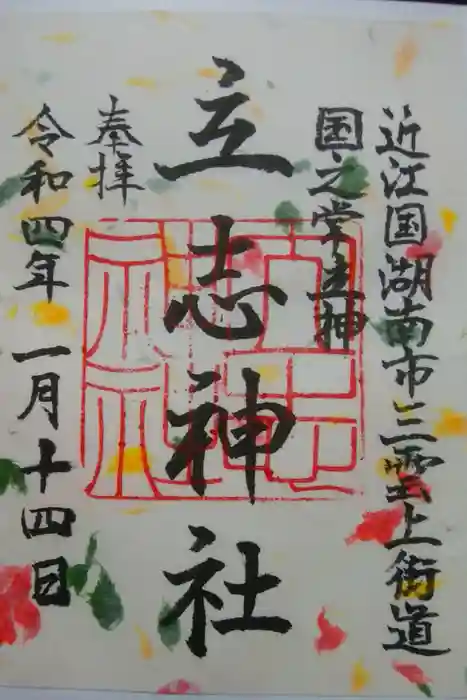 近江国湖南市三雲上街道
国之常立神
立志神社
奉拝
令和四年一月十四日